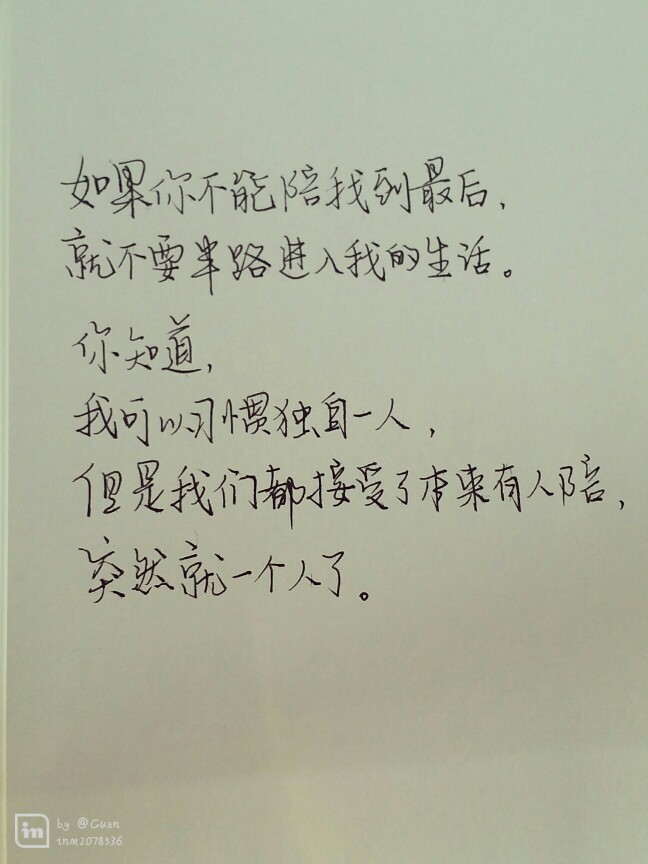 如果你不能陪我到最后，
就不要半路进入我的生活。
你知道，
我可以习惯独自一人，
但是我们都接受了本来有人陪，
突然就一个人了。
in
by @Guan
inm2078536